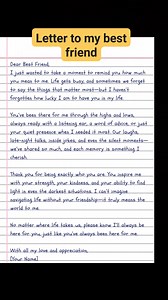 Letter to my best
friend
Dear Best Friend,
I just wanted to take a moment to remind you how much
you mean to me. Life gets busy, and sometimes we forget
to say the things that matter most—but I haven't
forgotten how lucky I am to have you in my life.
You've been there for me through the highs and lows,
always ready with a listening ear, a word of advice, or
just your quiet presence when I needed it most. Our laughs,
late-night talks, inside jokes, and even the silent moments—
we've shared so much, and each memory is something I
cherish.
Thank you for being exactly who you are. You inspire me
with your strength, your kindness, and your ability to find
light in even the darkest situations. I can't imagine
navigating life without your friendship—it truly means the
world to me.
No matter where life takes us, please know I'll always be
here for you, just like you've always been here for me.
With all my love and appreciation,
[Your Name]